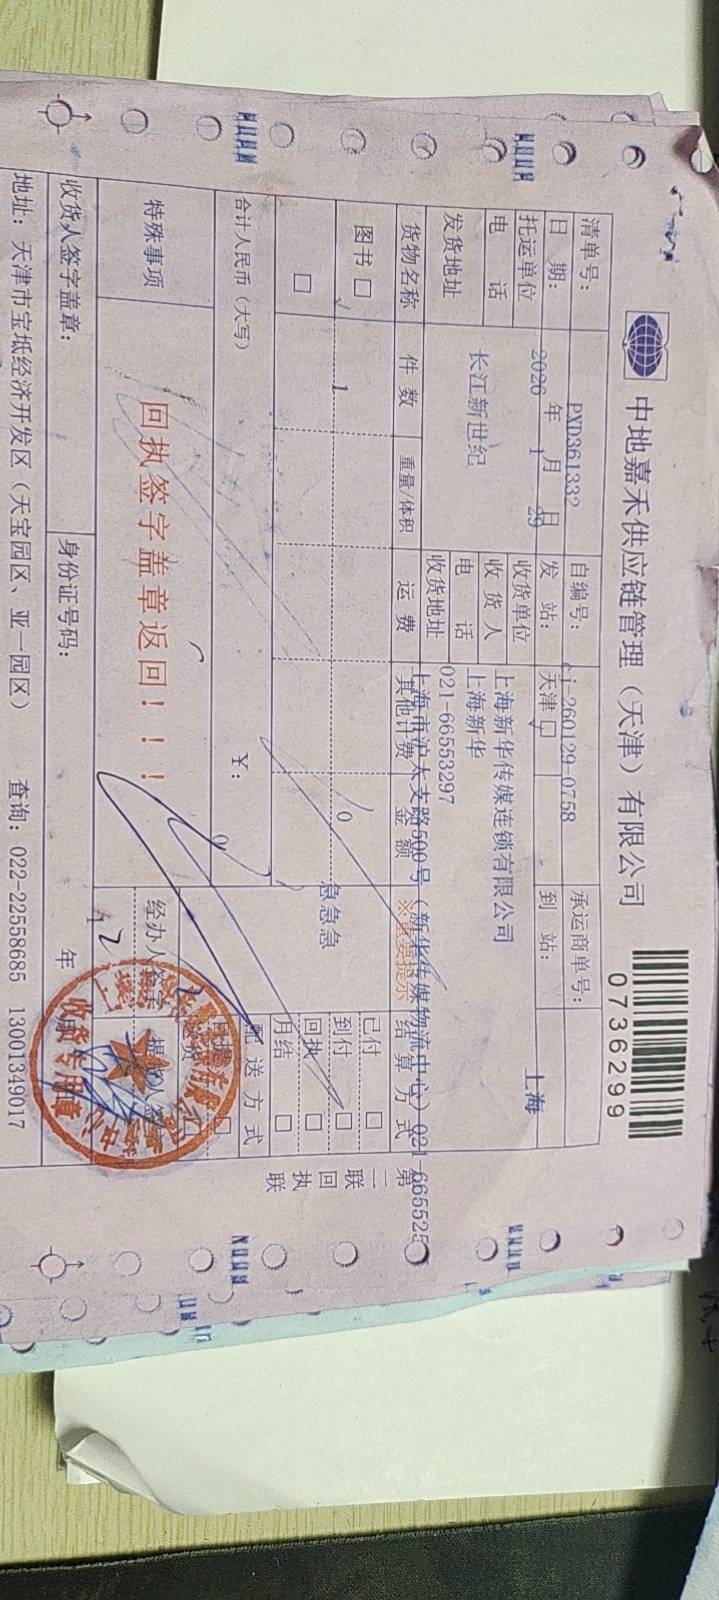 中地嘉禾供应链管理（天津）有限公司
0736299
清单号： PXD361332 自编号： cj-260129-0758 承运商单号：
日 期： 2026 年 1 月 29 日 发 站： 天津 □ 到 站： 上海
托运单位 收货单位 上海新华传媒连锁有限公司
电 话 收 货 人 上海新华
发货地址 长江新世纪 电 话 021-66553297
收货地址 上海市沪太支路500号（新华传媒物流中心）021-665525
货物名称 件 数 重量/体积 运 费 其他计费 金 额 ※重要提示 结 算 方 式
图书 □ 1 0 急急急 已付 □
到付 □
□ 回执 □
月结 □
合计人民币（大写） ￥： 配 送 方 式
特殊事项 回执签字盖章返回！！！ 经办人签字 提货人签字
收货人签字盖章： 身份证号码： 年
收货专用章
地址：天津市宝坻经济开发区（天宝园区、亚一园区） 查询：022-22558685 13001349017
第二联 回执联